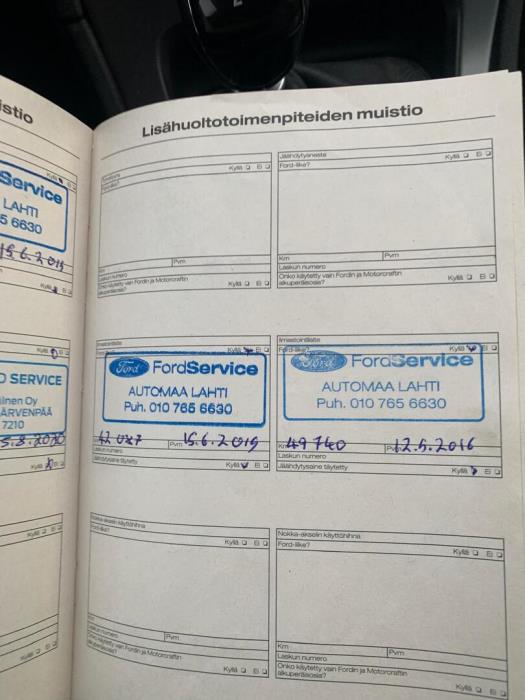 istio
Service
LAHTI
5 6630
15.6.2019
Kyllä
Kyllä
D SERVICE
inen Oy
ÄRVENPÄÄ
7210
5.8.2020
Kyllä
Lisähuoltotoimenpiteiden muistio
Kyllä Ei
Ford-liike?
Km Pvm
Laskun numero
Onko käytetty vain Fordin ja Motorcraftin
alkuperäisosia? Kyllä Ei
Jäähdytysneste
Ford-liike? Kyllä Ei
Km Pvm
Laskun numero
Onko käytetty vain Fordin ja Motorcraftin
alkuperäisosia? Kyllä Ei
Ilmastointilaite
Kyllä Ei
Ford FordService
AUTOMAA LAHTI
Puh. 010 765 6630
42 027 Pvm 15.6.2015
Laskun numero
Jäähdytysaine täytetty Kyllä Ei
Ilmastointilaite
Ford-liike? Kyllä Ei
Ford FordService
AUTOMAA LAHTI
Puh. 010 765 6630
Km 49 740 12.5.2016
Laskun numero
Jäähdytysaine täytetty Kyllä Ei
Nokka-akselin käyttöhihna
Ford-liike? Kyllä Ei
Km Pvm
Laskun numero
Onko käytetty vain Fordin ja Motorcraftin
alkuperäisosia? Kyllä Ei
Nokka-akselin käyttöhihna
Ford-liike? Kyllä Ei
Km Pvm
Laskun numero
Onko käytetty vain Fordin ja Motorcraftin
alkuperäisosia? Kyllä Ei